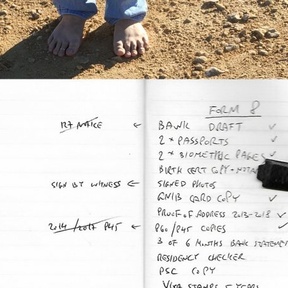 FORM 8
127 NOTICE ← BANK DRAFT ✓
2 * PASSPORTS ✓
2 * BIOMETRIC PAGES ✓
BIRTH CERT COPY +
SIGN BY WITNESS ← SIGNED PHOTOS
GNIB CARD COPY ✓
PROOF OF ADDRESS 2013-2018 ✓
P45 ← P60/P45 COPIES ✓
3 OF 6 MONTHS BANK STATEMENT
RESIDENCY CHECKER
PSC COPY
VISA STAMPS 5 YEARS